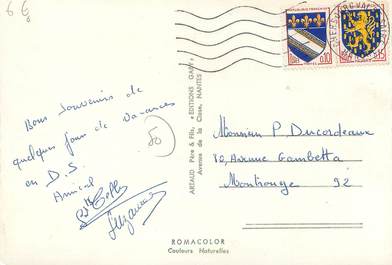 66
Bons souvenirs de
quelques jours de vacances
en D.S.
Amical
Suzanne
50
ARTAUD Père & Fils, "EDITIONS GABY"
Avenue de la Close, NANTES
REPUBLIQUE FRANÇAISE
0,10
0,15
Monsieur P. Ducordeaux
10, Avenue Gambetta
Montrouge 92
ROMACOLOR
Couleurs Naturelles